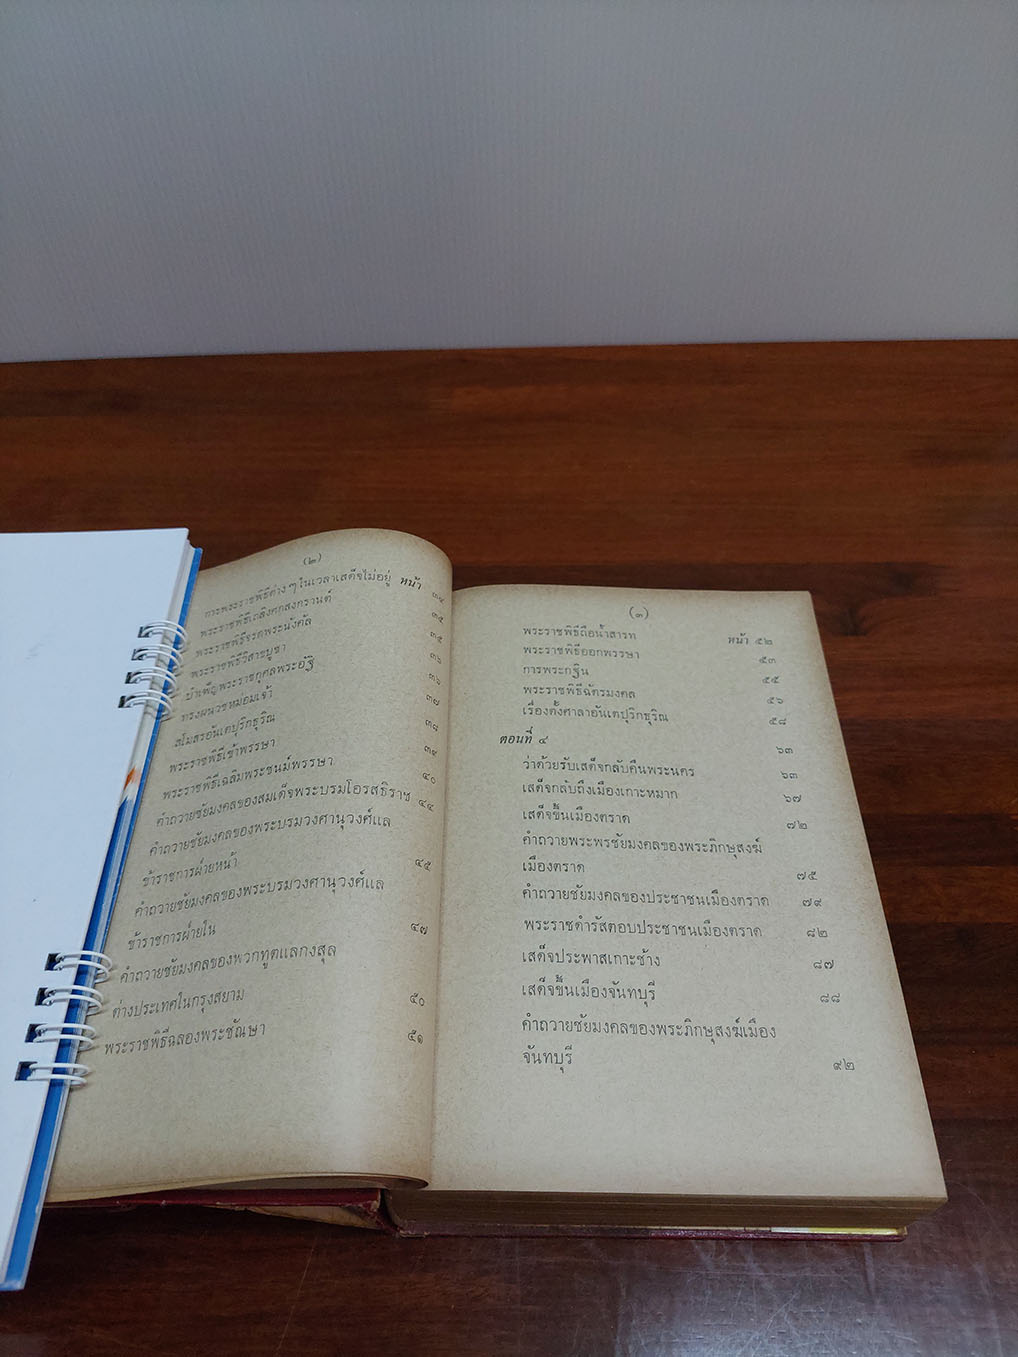 (๒)
การพระราชพิธีต่าง ๆ ในเวลาเสด็จไม่อยู่ หน้า ๓๔
พระราชพิธีเถลิงศกสงกรานต์ ๓๕
พระราชพิธีจรดพระนังคัล ๓๕
พระราชพิธีวิสาขบูชา ๓๖
บำเพ็ญพระราชกุศลพระอัฐิ ๓๖
ทรงผนวชหม่อมเจ้า ๓๗
สโมสรอันเตปุริกธุริณ ๓๘
พระราชพิธีเข้าพรรษา ๓๙
พระราชพิธีเฉลิมพระชนม์พรรษา ๔๐
คำถวายชัยมงคลของสมเด็จพระบรมโอรสธิราช ๔๔
คำถวายชัยมงคลของพระบรมวงศานุวงศ์แล
ข้าราชการฝ่ายหน้า ๔๕
คำถวายชัยมงคลของพระบรมวงศานุวงศ์แล
ข้าราชการฝ่ายใน ๔๗
คำถวายชัยมงคลของพวกทูตแลกงสุล
ต่างประเทศในกรุงสยาม ๕๐
พระราชพิธีฉลองพระชัณษา ๕๑
(๓)
พระราชพิธีถือน้ำสารท หน้า ๕๒
พระราชพิธีออกพรรษา ๕๓
การพระกฐิน ๕๕
พระราชพิธีฉัตรมงคล ๕๖
เรื่องตั้งศาลาอันเตปุริกธุริณ ๕๘
ตอนที่ ๔
ว่าด้วยรับเสด็จกลับคืนพระนคร ๖๓
เสด็จกลับถึงเมืองเกาะหมาก ๖๓
เสด็จขึ้นเมืองตราด ๖๗
คำถวายพระพรชัยมงคลของพระภิกษุสงฆ์
เมืองตราด ๗๒
คำถวายชัยมงคลของประชาชนเมืองตราด ๗๕
พระราชดำรัสตอบประชาชนเมืองตราด ๗๙
เสด็จประพาสเกาะช้าง ๘๒
เสด็จขึ้นเมืองจันทบุรี ๘๗
คำถวายชัยมงคลของพระภิกษุสงฆ์เมือง ๘๘
จันทบุรี ๙๒